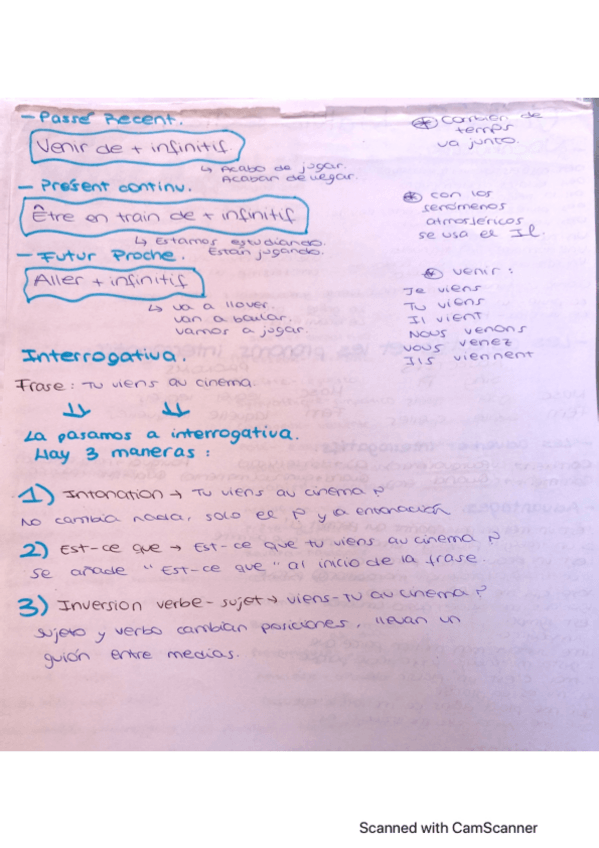 - Passé Recent.
Venir de + infinitif.
↳ Acabo de jugar.
Acaban de llegar.
* Cambién de
temps
va junto.
- Présent continu.
Être en train de + infinitif
↳ Estamos estudiando.
Están jugando.
* con los
fenómenos
atmosféricos
se usa el Il.
- Futur Proche.
Aller + infinitif
↳ va a llover.
van a bailar.
vamos a jugar.
* venir :
Je viens
Tu viens
Il vient
Nous venons
vous venez
Ils viennent
Interrogativa.
Frase : Tu viens au cinema.
La pasamos a interrogativa.
Hay 3 maneras :
1) Intonation → Tu viens au cinema ?
No cambia nada, solo el ? y la entonación
2) Est-ce que → Est-ce que tu viens au cinema ?
se añade " Est-ce que " al inicio de la frase.
3) Inversion verbe - sujet → viens-tu au cinema ?
sujeto y verbo cambian posiciones, llevan un
guión entre medias.
Scanned with CamScanner